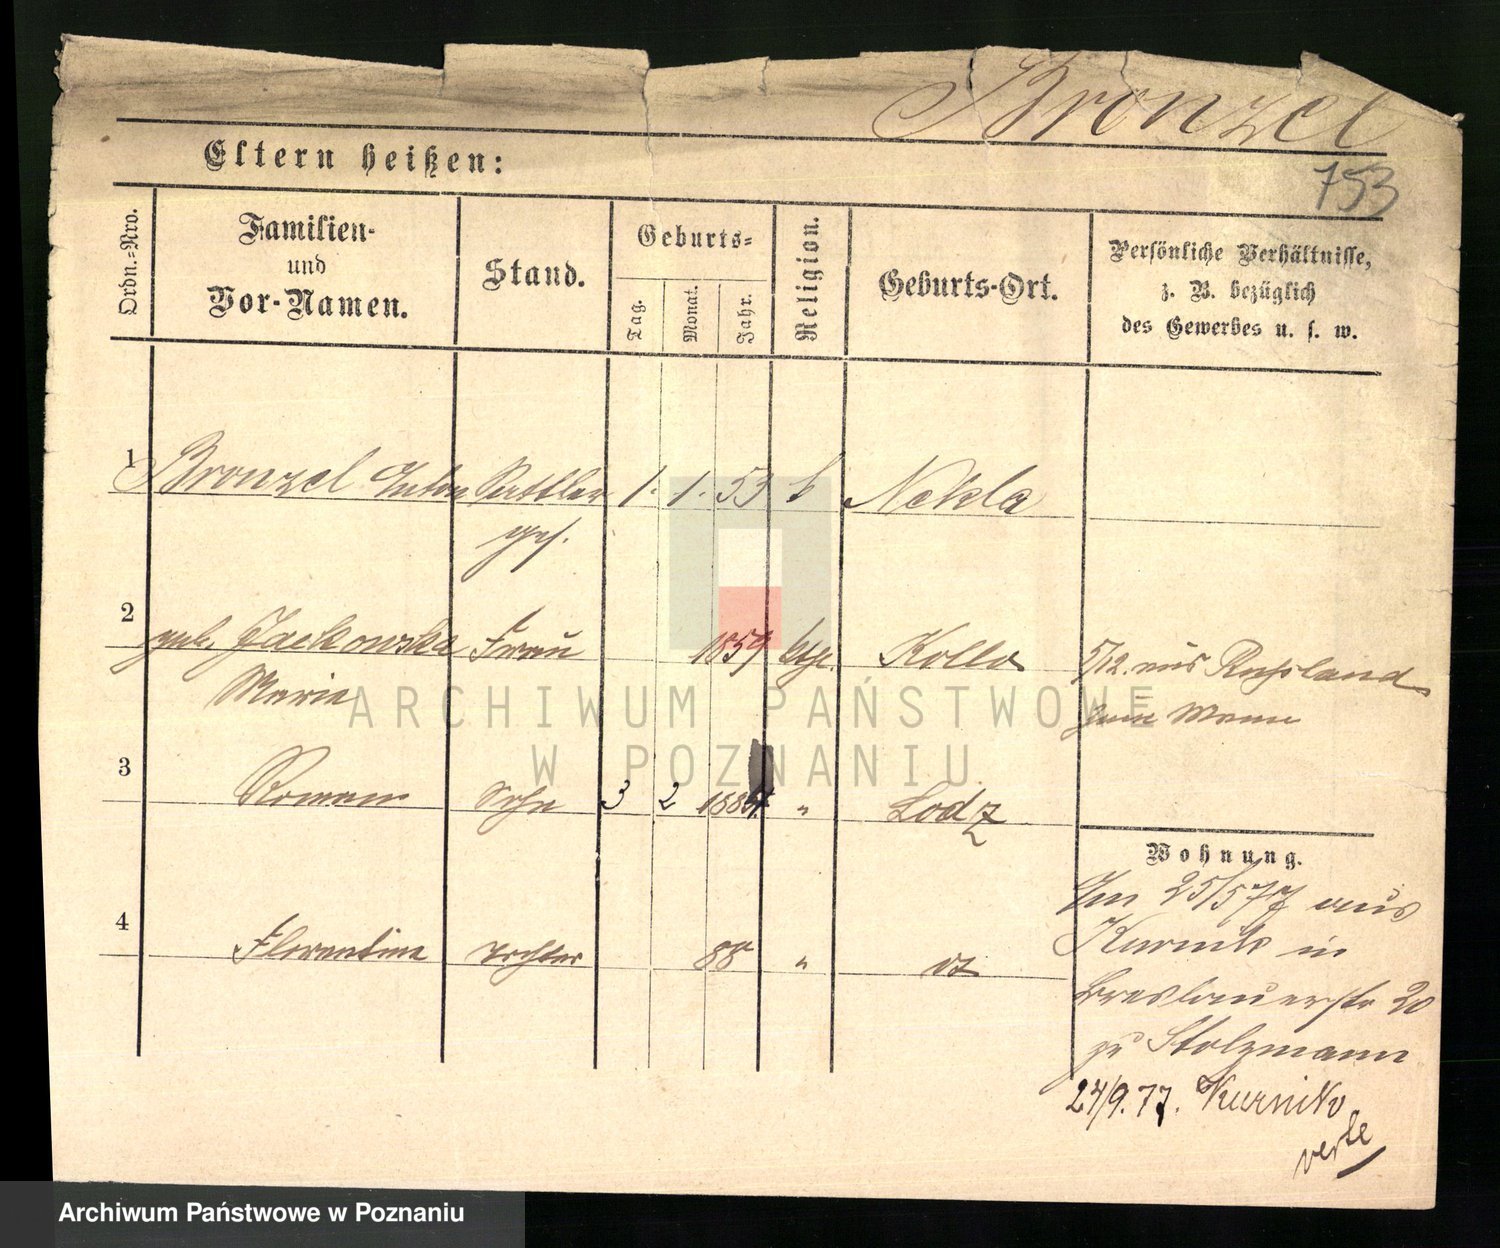 Bronzel
753
Eltern heißen:
Ordn.=Nro.
Familien-
und
Vor-Namen.
Stand.
Geburts=
Tag.
Monat.
Jahr.
Religion.
Geburts-Ort.
Persönliche Verhältnisse,
z. B. bezüglich
des Gewerbes u. s. w.
1 Bronzel Anton Sattler 1. 1. 53 k Nekla
ges.
2 geb. Jackowska Frau 1859 kth. Kollo 5/12. aus Russland
Marie zum Mann
3 Roman Sohn 3 2 1884. " Lodz
Wohnung.
Im 25/5 77 aus
4 Florentine Tochter 88 " dt
Kurnik in
Breslauerstr 20
zu Stolzmann
24/9. 77. Kurnik
verte
ARCHIWUM PAŃSTWOWE
W POZNANIU
Archiwum Państwowe w Poznaniu